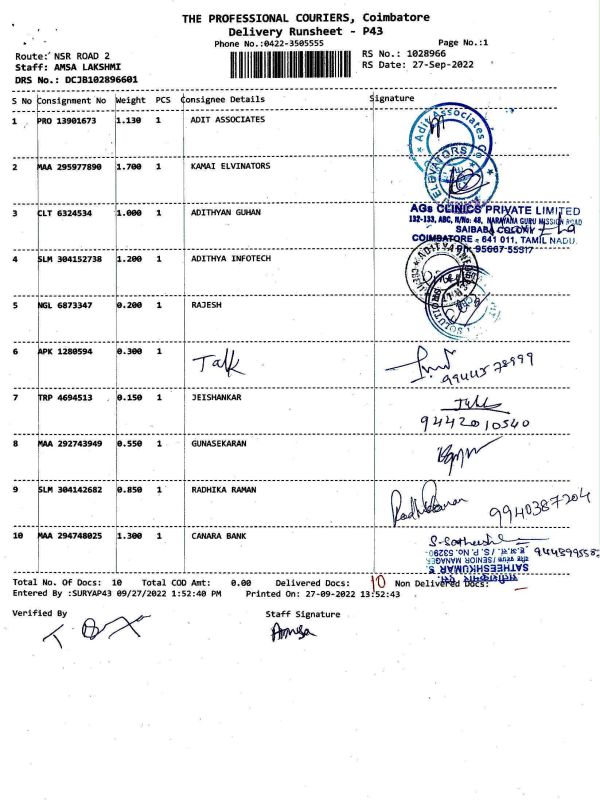 THE PROFESSIONAL COURIERS, Coimbatore
Delivery Runsheet - P43
Phone No.:0422-3505555
Page No.:1
Route: NSR ROAD 2
RS No.: 1028966
Staff: AMSA LAKSHMI
RS Date: 27-Sep-2022
DRS No.: DCJB102896601
S No Consignment No Weight PCS Consignee Details Signature
1 PRO 13901673 1.130 1 ADIT ASSOCIATES
Adit Associates
2 MAA 295977890 1.700 1 KAMAI ELVINATORS
ELEVATORS
3 CLT 6324534 1.000 1 ADITHYAN GUHAN
AGs CLINICS PRIVATE LIMITED
132-133, ABC, N/No: 48, NARAYANA GURU MISSION ROAD
SAIBABA COLONY
COIMBATORE - 641 011, TAMIL NADU.
Ph: 95667 55917
4 SLM 304152738 1.200 1 ADITHYA INFOTECH
5 NGL 6873347 0.200 1 RAJESH
6 APK 1280594 0.300 1 Talk
9944578999
7 TRP 4694513 0.150 1 JEISHANKAR
9442010540
8 MAA 292743949 0.550 1 GUNASEKARAN
9 SLM 304142682 0.850 1 RADHIKA RAMAN
Radhika Raman 9940387204
10 MAA 294748025 1.300 1 CANARA BANK
S. P. No. 53290
SENIOR MANAGER
SATHEESHKUMAR S.
Total No. Of Docs: 10 Total COD Amt: 0.00 Delivered Docs: 10 Non Delivered Docs: -
Entered By :SURYAP43 09/27/2022 1:52:40 PM Printed On: 27-09-2022 13:52:43
Verified By Staff Signature
Amsa